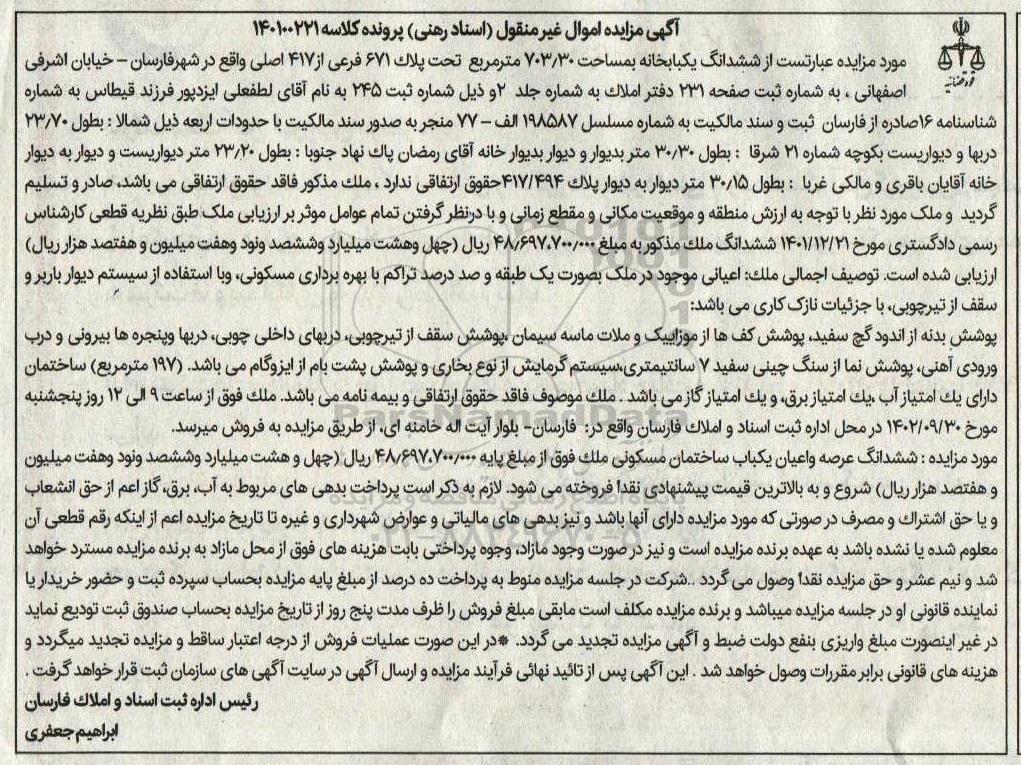 آگهی مزایده اموال غیر منقول (اسناد رهنی) پرونده کلاسه ۱۴۰۱۰۰۲۲۱
مورد مزایده عبارتست از ششدانگ یکبابخانه بمساحت ۷۰۳٫۳۰ مترمربع تحت پلاک ۶۷۱ فرعی از۴۱۷ اصلی واقع در شهرفارسان – خیابان اشرفی
اصفهانی ، به شماره ثبت صفحه ۲۳۱ دفتر املاک به شماره جلد ۲و ذیل شماره ثبت ۲۴۵ به نام آقای لطفعلی ایزدپور فرزند قیطاس به شماره
شناسنامه ۱۶صادره از فارسان ثبت و سند مالکیت به شماره مسلسل ۱۹۸۵۸۷ الف – ۷۷ منجر به صدور سند مالکیت با حدودات اربعه ذیل شمالا : بطول ۲۳٫۷۰
دربها و دیواریست بکوچه شماره ۲۱ شرقا : بطول ۳۰٫۳۰ متر بدیوار و دیوار بدیوار خانه آقای رمضان پاک نهاد جنوبا : بطول ۲۳٫۲۰ متر دیواریست و دیوار به دیوار
خانه آقایان باقری و مالکی غربا : بطول ۳۰٫۱۵ متر دیوار به دیوار پلاک ۴۱۷/۴۹۴حقوق ارتفاقی ندارد ، ملک مذکور فاقد حقوق ارتفاقی می باشد، صادر و تسلیم
گردید و ملک مورد نظر با توجه به ارزش منطقه و موقعیت مکانی و مقطع زمانی و با درنظر گرفتن تمام عوامل موثر بر ارزیابی ملک طبق نظریه قطعی کارشناس
رسمی دادگستری مورخ ۱۴۰۱/۱۲/۲۱ ششدانگ ملک مذکور به مبلغ ۴۸٫۶۹۷٫۷۰۰٫۰۰۰ ریال (چهل وهشت میلیارد وششصد ونود وهفت میلیون و هفتصد هزار ریال)
ارزیابی شده است. توصیف اجمالی ملک: اعیانی موجود در ملک بصورت یک طبقه و صد درصد تراکم با بهره برداری مسکونی، وبا استفاده از سیستم دیوار باربر و
سقف از تیرچوبی، با جزئیات نازک کاری می باشد:
پوشش بدنه از اندود گچ سفید، پوشش کف ها از موزاییک و ملات ماسه سیمان ،پوشش سقف از تیرچوبی، دربهای داخلی چوبی، دربها وپنجره ها بیرونی و درب
ورودی آهنی، پوشش نما از سنگ چینی سفید ۷ سانتیمتری،سیستم گرمایش از نوع بخاری و پوشش پشت بام از ایزوگام می باشد. (۱۹۷ مترمربع) ساختمان
دارای یک امتیاز آب ،یک امتیاز برق، و یک امتیاز گاز می باشد . ملک موصوف فاقد حقوق ارتفاقی و بیمه نامه می باشد. ملک فوق از ساعت ۹ الی ۱۲ روز پنجشنبه
مورخ ۱۴۰۲/۰۹/۳۰ در محل اداره ثبت اسناد و املاک فارسان واقع در: فارسان– بلوار آیت اله خامنه ای، از طریق مزایده به فروش میرسد.
مورد مزایده : ششدانگ عرصه واعیان یکباب ساختمان مسکونی ملک فوق از مبلغ پایه ۴۸٫۶۹۷٫۷۰۰٫۰۰۰ ریال (چهل و هشت میلیارد وششصد ونود وهفت میلیون
و هفتصد هزار ریال) شروع و به بالاترین قیمت پیشنهادی نقداً فروخته می شود. لازم به ذکر است پرداخت بدهی های مربوط به آب، برق، گاز اعم از حق انشعاب
و یا حق اشتراک و مصرف در صورتی که مورد مزایده دارای آنها باشد و نیز بدهی های مالیاتی و عوارض شهرداری و غیره تا تاریخ مزایده اعم از اینکه رقم قطعی آن
معلوم شده یا نشده باشد به عهده برنده مزایده است و نیز در صورت وجود مازاد، وجوه پرداختی بابت هزینه های فوق از محل مازاد به برنده مزایده مسترد خواهد
شد و نیم عشر و حق مزایده نقداً وصول می گردد ..شرکت در جلسه مزایده منوط به پرداخت ده درصد از مبلغ پایه مزایده بحساب سپرده ثبت و حضور خریدار یا
نماینده قانونی او در جلسه مزایده میباشد و برنده مزایده مکلف است مابقی مبلغ فروش را ظرف مدت پنج روز از تاریخ مزایده بحساب صندوق ثبت تودیع نماید
در غیر اینصورت مبلغ واریزی بنفع دولت ضبط و آگهی مزایده تجدید می گردد. *در این صورت عملیات فروش از درجه اعتبار ساقط و مزایده تجدید میگردد و
هزینه های قانونی برابر مقررات وصول خواهد شد . این آگهی پس از تائید نهائی فرآیند مزایده و ارسال آگهی در سایت آگهی های سازمان ثبت قرار خواهد گرفت .
رئیس اداره ثبت اسناد و املاک فارسان
ابراهیم جعفری
ParsNamadData